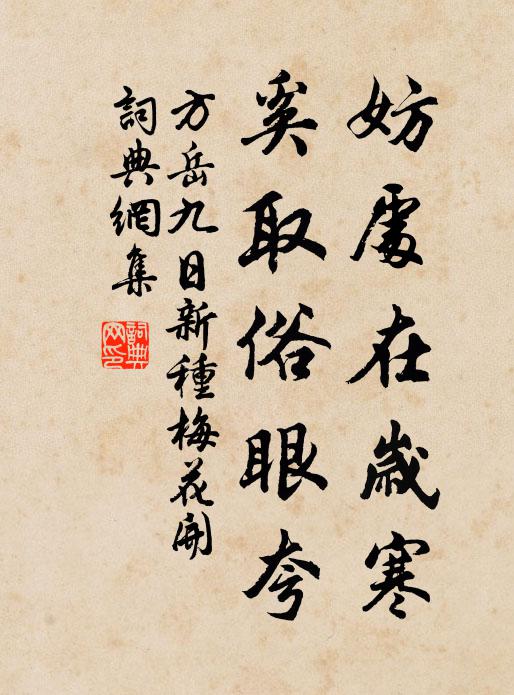 妨處在歲寒
奚取俗眼夸
方岳九日新種梅花開
詞典網集
詞典网印